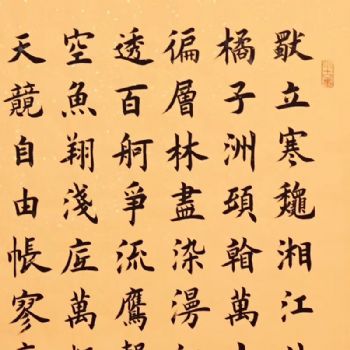 獨立寒龝湘江
橘子洲頭看萬
徧層林盡染漫
透百舸爭流鷹
空魚翔淺底萬
天競自由悵寥